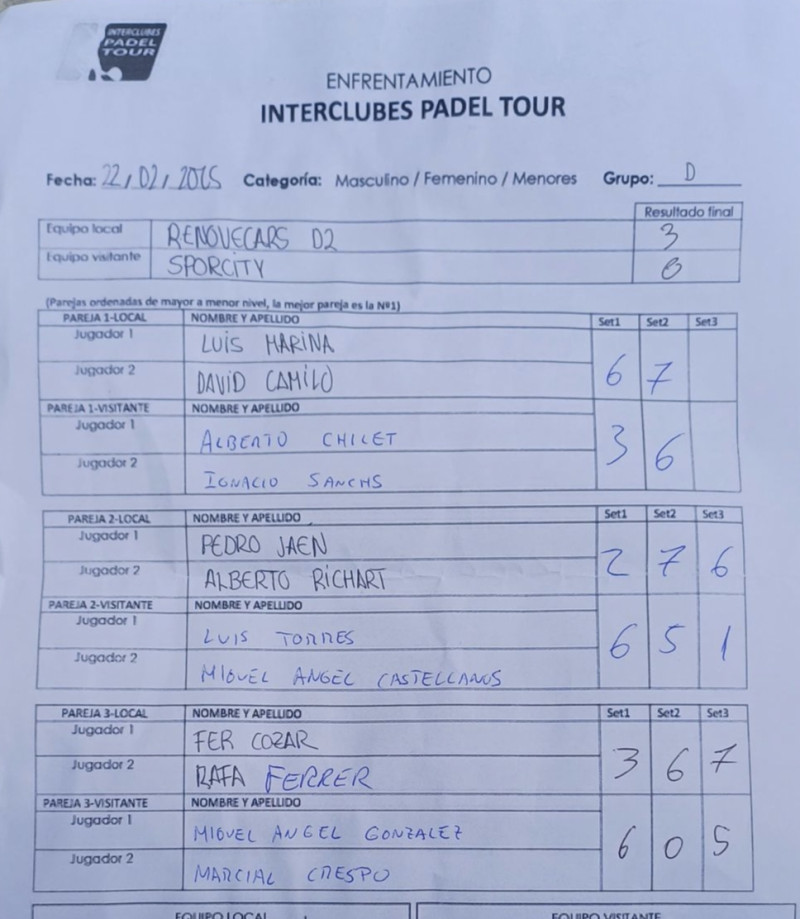 INTERCLUBES
PADEL
TOUR
ENFRENTAMIENTO
INTERCLUBES PADEL TOUR
Fecha: 22/02/2025 Categoría: Masculino / Femenino / Menores Grupo: D
Resultado final
Equipo local RENOVECARS D2 3
Equipo visitante SPORCITY 0
(Parejas ordenadas de mayor a menor nivel, la mejor pareja es la Nº1)
PAREJA 1-LOCAL NOMBRE Y APELLIDO Set1 Set2 Set3
Jugador 1 LUIS MARINA
Jugador 2 DAVID CAMILO 6 7
PAREJA 1-VISITANTE NOMBRE Y APELLIDO
Jugador 1 ALBERTO CHILET 3 6
Jugador 2 IGNACIO SANCHS
PAREJA 2-LOCAL NOMBRE Y APELLIDO Set1 Set2 Set3
Jugador 1 PEDRO JAEN 2 7 6
Jugador 2 ALBERTO RICHART
PAREJA 2-VISITANTE NOMBRE Y APELLIDO
Jugador 1 LUIS TORRES 6 5 1
Jugador 2 MIGUEL ANGEL CASTELLANOS
PAREJA 3-LOCAL NOMBRE Y APELLIDO Set1 Set2 Set3
Jugador 1 FER COZAR 3 6 7
Jugador 2 RAFA FERRER
PAREJA 3-VISITANTE NOMBRE Y APELLIDO
Jugador 1 MIGUEL ANGEL GONZALEZ 6 0 5
Jugador 2 MARCIAL CRESPO
EQUIPO LOCAL EQUIPO VISITANTE